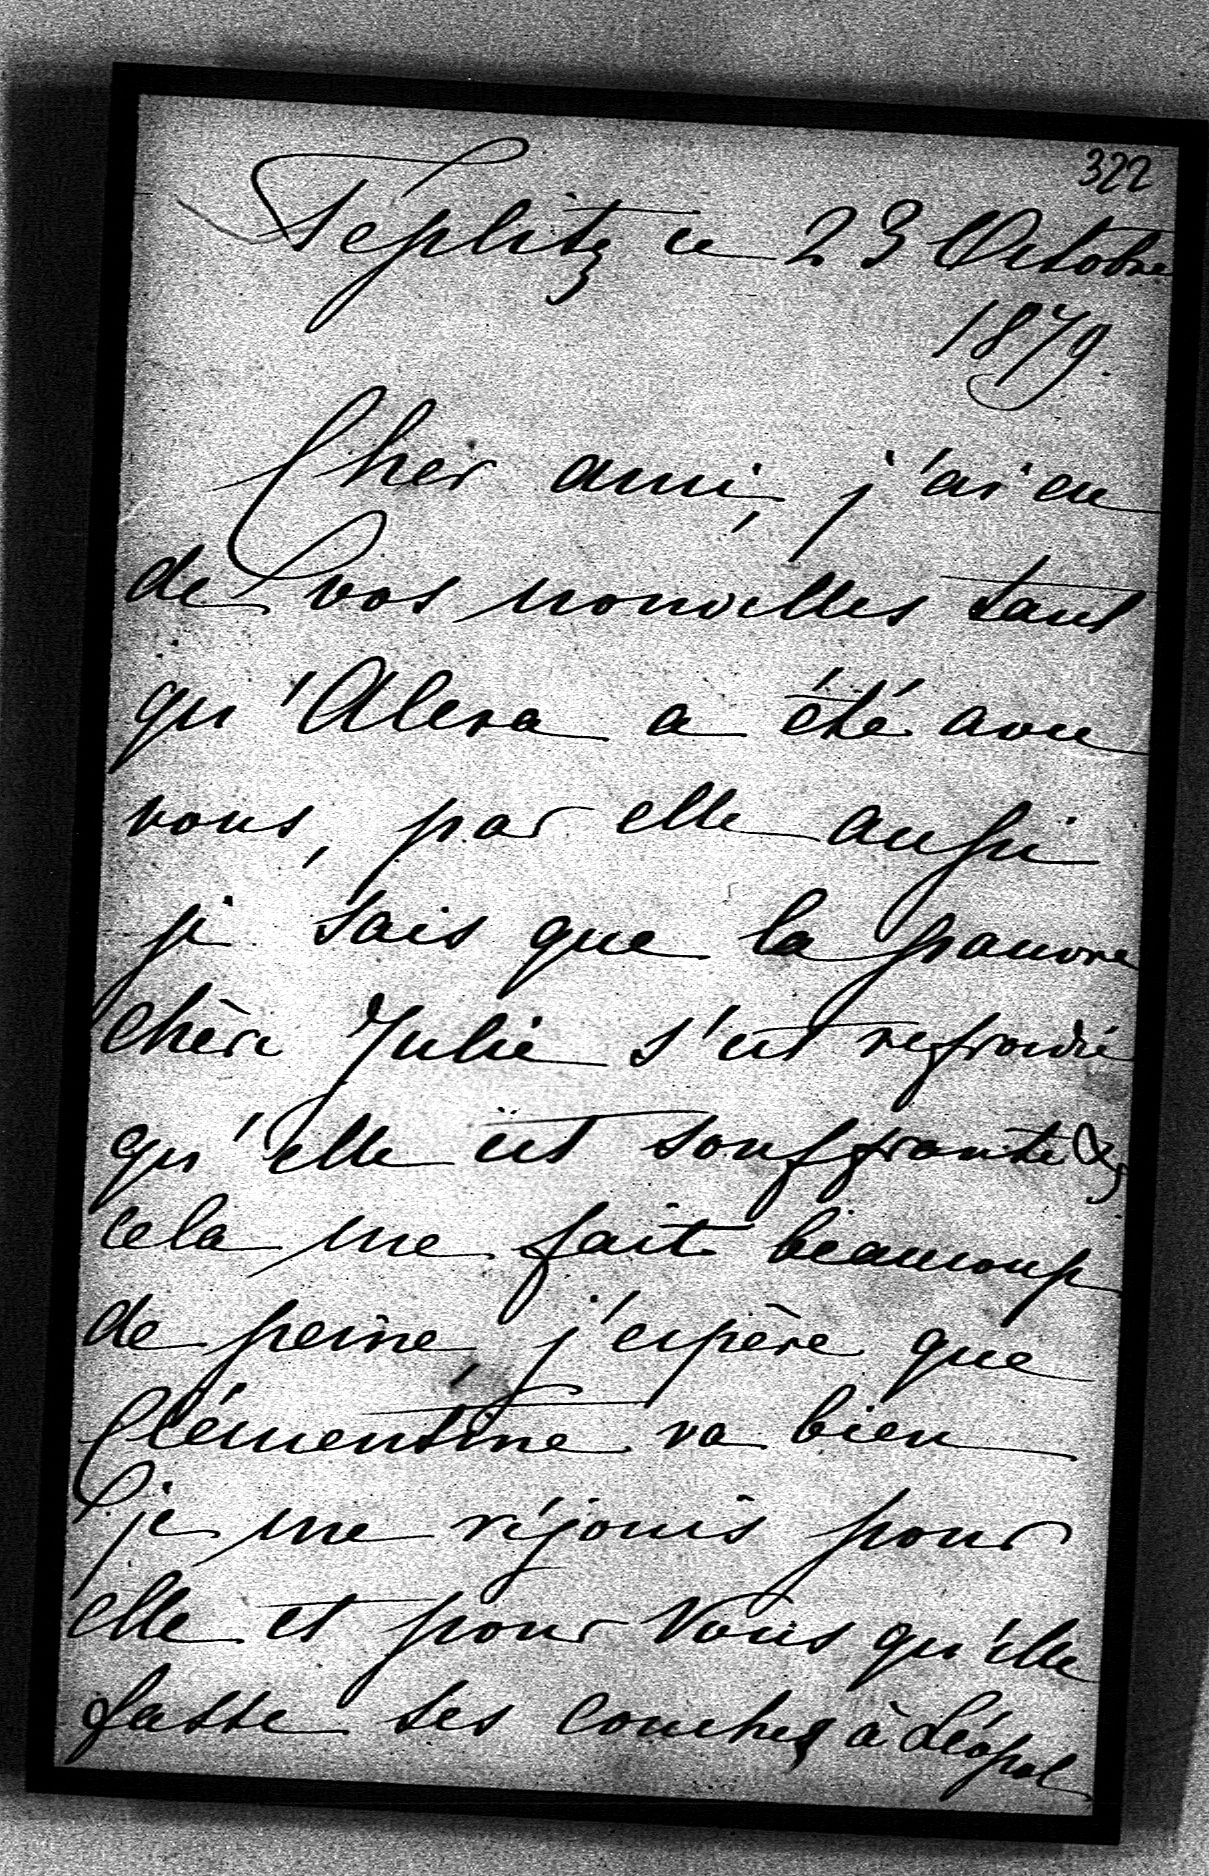 322
Teplitz ce 23 Octobre
1879.
Cher ami, j'ai eu
de vos nouvelles tant
qu'Alexa a été avec
vous, par elle aussi
je sais que la pauvre
chère Julie s'est refroidie
qu'elle est souffrante &,
cela me fait beaucoup
de peine, j'espère que
Clémentine va bien
je me réjouis pour
elle et pour Vous qu'elle
fasse ses couches à Léopol